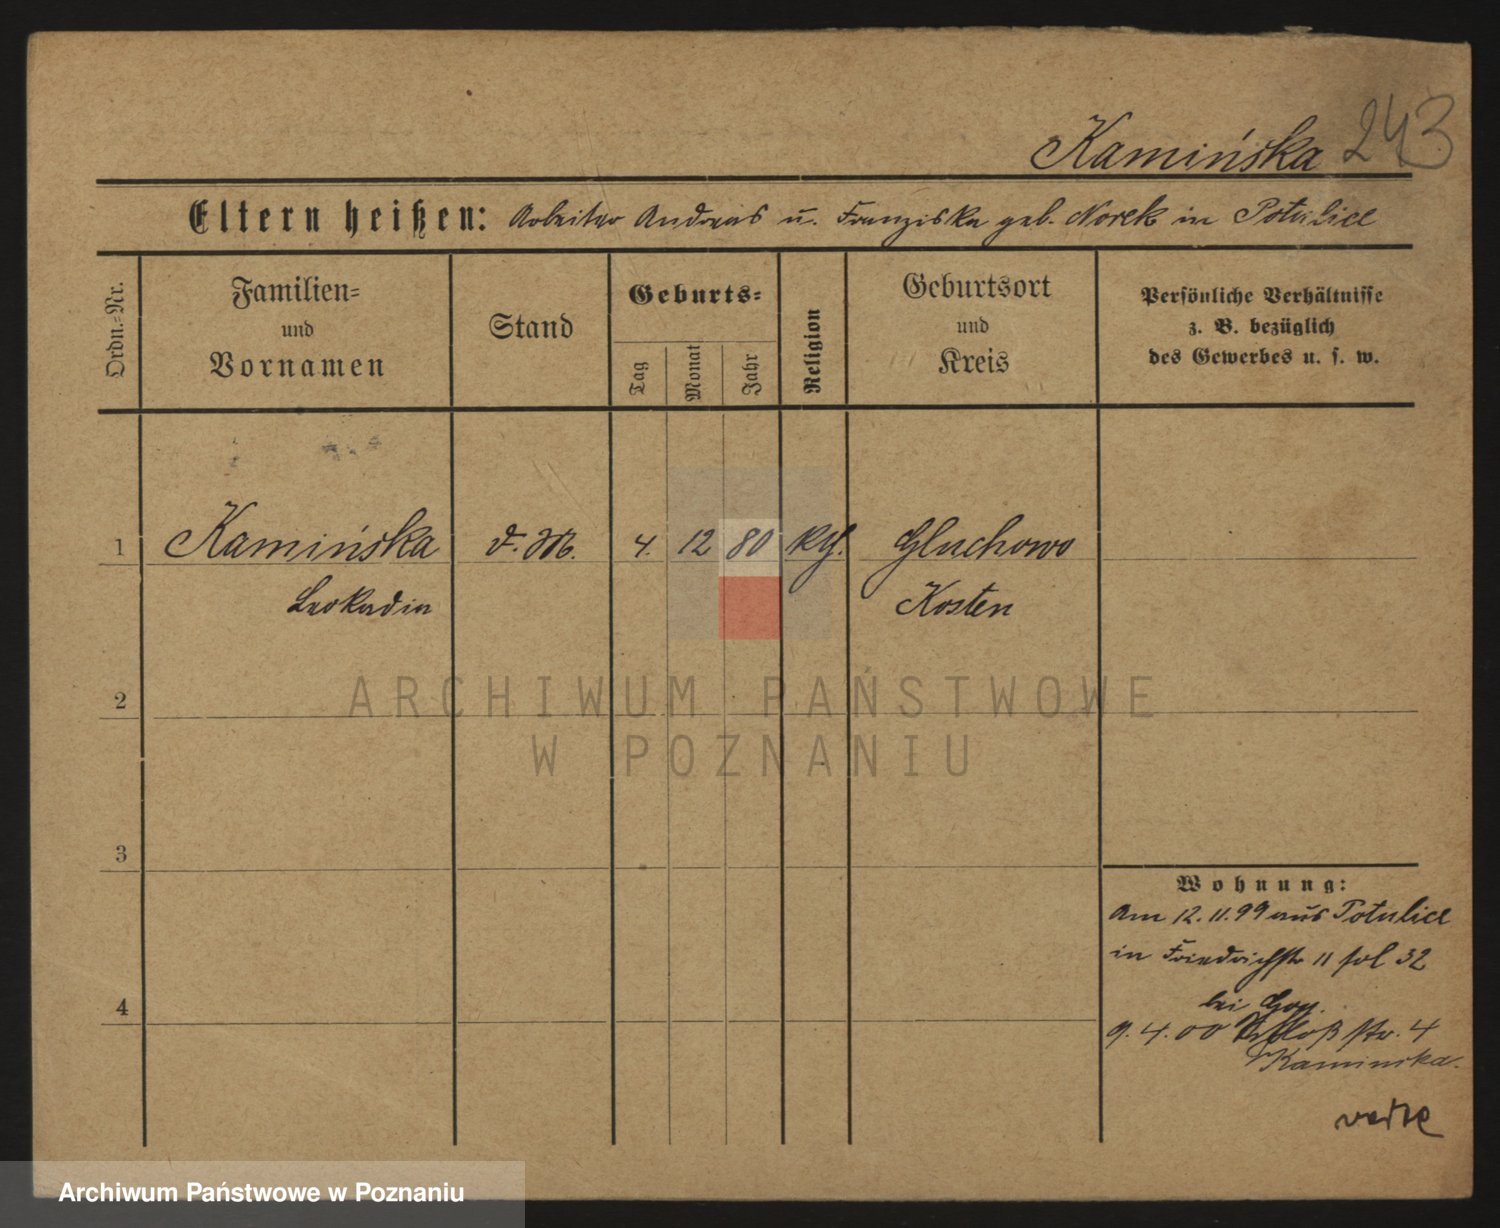 Kamińska 243
Eltern heißen: Arbeiter Andreas u. Franziska geb. Norek in Potulice
Ordn.-Nr.
Familien-
und
Vornamen
Stand
Geburts-
Tag
Monat
Jahr
Religion
Geburtsort
und
Kreis
Persönliche Verhältnisse
z. B. bezüglich
des Gewerbes u. s. w.
1 Kamińska d. M. 4. 12 80 Gluchowo
Leokadia Kosten
2
3
4
ARCHIWUM PAŃSTWOWE
W POZNANIU
Wohnung:
Am 12.11.99 aus Potulice
in Friedrichstr 11 fol 32
bei
9.4.00 Schloß str. 4
Kaminska.
Archiwum Państwowe w Poznaniu